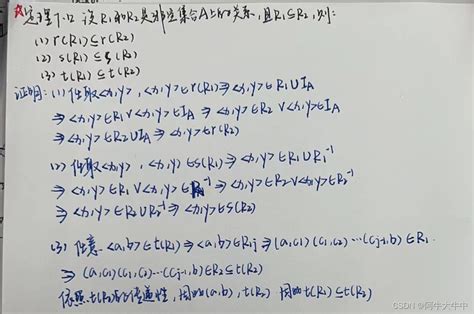 ☆定理7.12 设R1和R2是非空集合A上的关系,且R1⊆R2,则:
(1) r(R1)⊆r(R2)
(2) s(R1)⊆s(R2)
(3) t(R1)⊆t(R2)
证明: (1) 任取<x,y>, <x,y>∈r(R1)⇒<x,y>∈R1∪IA
⇒<x,y>∈R1∨<x,y>∈IA ⇒<x,y>∈R2∨<x,y>∈IA
⇒<x,y>∈R2∪IA⇒<x,y>∈r(R2)
(2) 任取<x,y>, <x,y>∈s(R1)⇒<x,y>∈R1∪R1⁻¹
⇒<x,y>∈R1∨<x,y>∈R1⁻¹⇒<x,y>∈R2∨<x,y>∈R2⁻¹
⇒<x,y>∈R2∪R2⁻¹⇒<x,y>∈s(R2)
(3) 任意<a,b>∈t(R1)⇒<a,b>∈R1j⇒(a,c1)(c1,c2)…(cj-1,b)∈R1
⇒(a,c1)(c1,c2)…(cj-1,b)∈R2⊆t(R2)
依照t(R2)的传递性,因此(a,b),t(R2) 因此t(R1)⊆t(R2)
CSDN @阿牛大牛中